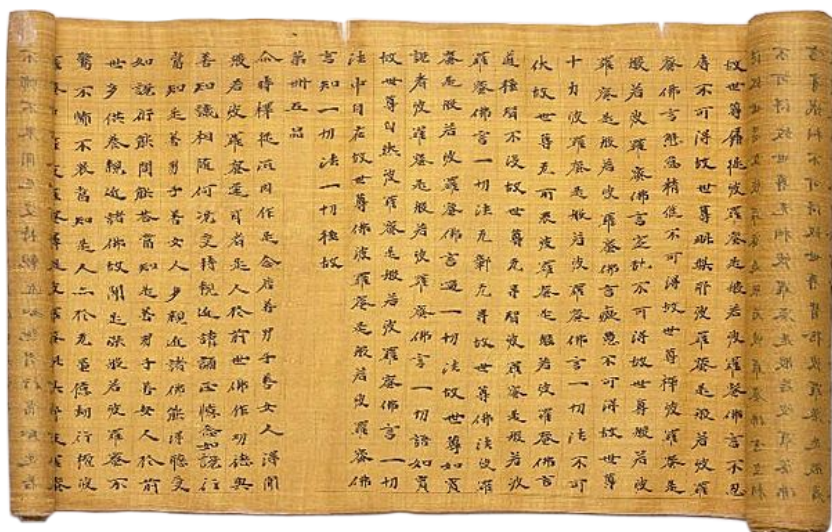 故世尊羼提波羅蜜是般若波羅蜜佛言不忍
辱不可得故世尊毗梨耶波羅蜜是般若波羅
蜜佛言懈怠精進不可得故世尊禪波羅蜜是
般若波羅蜜佛言定亂不可得故世尊般若波
羅蜜是般若波羅蜜佛言癡慧不可得故世尊
十力波羅蜜是般若波羅蜜佛言一切法不可
伏故世尊无所畏波羅蜜是般若波羅蜜佛言
道種智不沒故世尊无㝵智波羅蜜是般若波
羅蜜佛言一切法无鄣无㝵故世尊佛法波羅
蜜是般若波羅蜜佛言過一切法故世尊如實
說者波羅蜜是般若波羅蜜佛言一切語如實
故世尊自然波羅蜜是般若波羅蜜佛言一切
法中自在故世尊佛波羅蜜是般若波羅蜜佛
言知一切法一切種故
第卌五品
尒時釋提桓因作是念若善男子善女人得聞
般若波羅蜜逕耳者是人於前世佛作功德與
善知識相隨何況受持親近讀誦正憶念如說行
當知是善男子善女人多親近諸佛能得聽受
如說行能問能答當知是善男子善女人於前
世多供養親近諸佛故聞是深般若波羅蜜不
驚不怖不畏當知是人亦於无量億劫行檀波